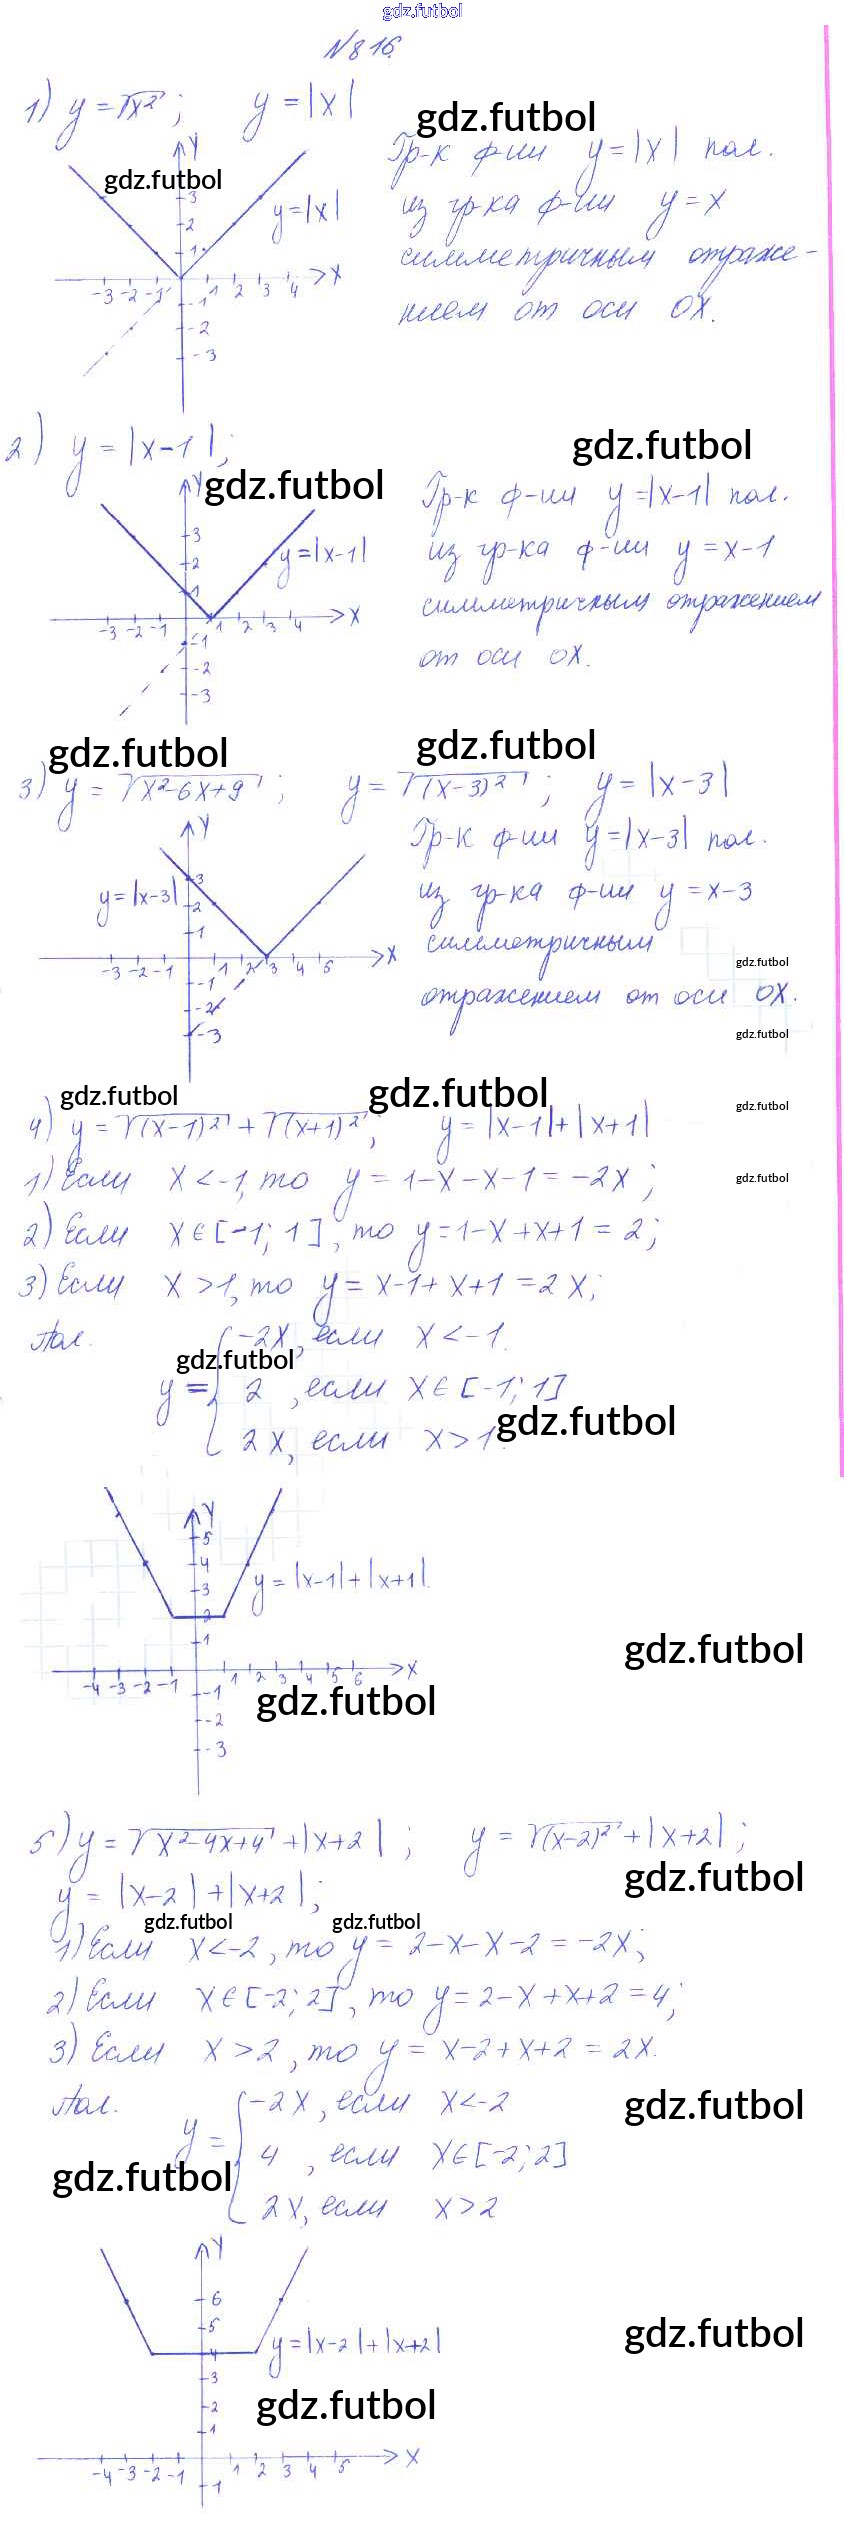 gdz.futbol
№816.
1) y = √x²; y = |x|
gdz.futbol
Гр-к ф-ии y = |x| пол.
gdz.futbol
из гр-ка ф-ии y = x
y = |x|
симметричным отраже-
нием от оси OX.
Y
3
2
1
-3 -2 -1 1 2 3 4 X
-1
-2
-3
2) y = |x-1|;
gdz.futbol
gdz.futbol
Гр-к ф-ии y = |x-1| пол.
из гр-ка ф-ии y = x-1
y = |x-1|
симметричным отражением
от оси OX.
Y
3
2
1
-3 -2 -1 1 2 3 4 X
-1
-2
-3
gdz.futbol
gdz.futbol
3) y = √x²-6x+9; y = √(x-3)²; y = |x-3|
Гр-к ф-ии y = |x-3| пол.
y = |x-3|
из гр-ка ф-ии y = x-3
симметричным
gdz.futbol
отражением от оси OX.
gdz.futbol
Y
3
2
1
-3 -2 -1 1 2 3 4 5 X
-1
-2
-3
gdz.futbol
gdz.futbol
gdz.futbol
4) y = √(x-1)² + √(x+1)²; y = |x-1|+|x+1|
1) Если x < -1, то y = 1-x-x-1 = -2x;
gdz.futbol
2) Если x∈[-1; 1], то y = 1-x+x+1 = 2;
3) Если x > 1, то y = x-1+x+1 = 2x;
Пол.
-2x, если x < -1.
gdz.futbol
y = 2, если x∈[-1; 1]
gdz.futbol
2x, если x > 1.
Y
5
4
3
2
1
y = |x-1|+|x+1|.
-4 -3 -2 -1 1 2 3 4 5 6 X
-1
-2
-3
gdz.futbol
gdz.futbol
5) y = √x²-4x+4 + |x+2|; y = √(x-2)² + |x+2|;
gdz.futbol
y = |x-2|+|x+2|;
gdz.futbol
gdz.futbol
1) Если x < -2, то y = 2-x-x-2 = -2x;
2) Если x∈[-2; 2], то y = 2-x+x+2 = 4;
3) Если x > 2, то y = x-2+x+2 = 2x.
Пол.
-2x, если x < -2
gdz.futbol
y = 4, если x∈[-2; 2]
gdz.futbol
2x, если x > 2
Y
6
5
4
3
2
1
y = |x-2|+|x+2|
gdz.futbol
gdz.futbol
-4 -3 -2 -1 1 2 3 4 5 X
-1